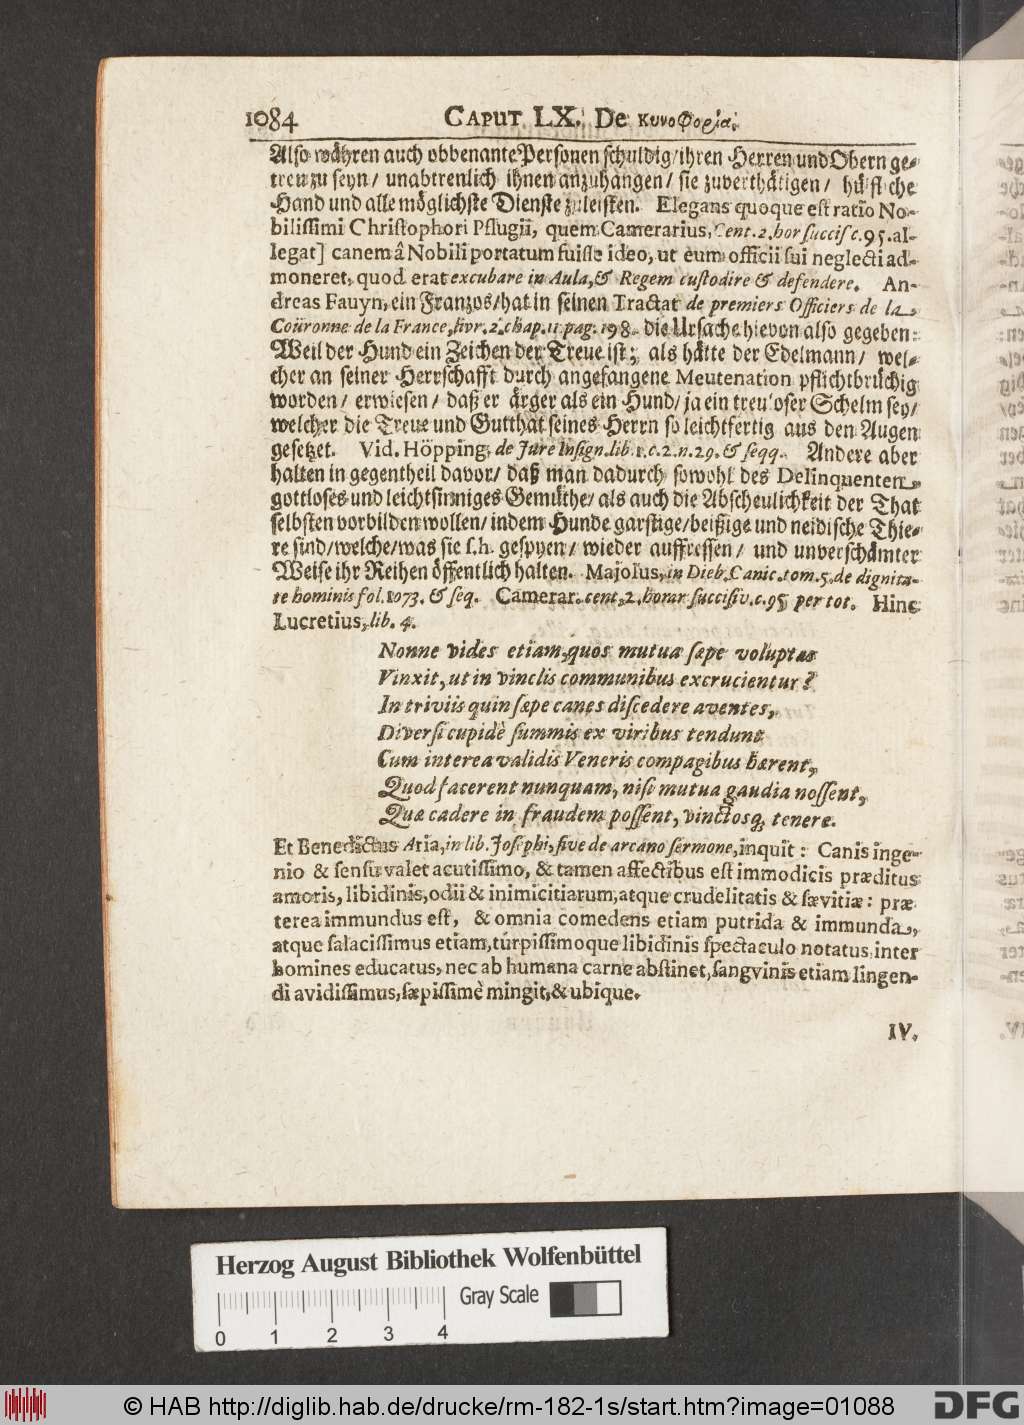 1084 CAPUT LX. De κυνοφορία.
Also währen auch obbenante Personen schuldig/ ihren Herren und Obern ge-
treu zu seyn/ unabtrenlich ihnen anzuhangen/ sie zuverthätigen/ hülfliche
Hand und alle möglichste Dienste zuleisten. Elegans quoque est ratio No-
bilissimi Christophori Pflugii, quem Camerarius, Cent. 2. hor succis c. 95. al-
legat] canem â Nobili portatum fuisse ideo, ut eum officii sui neglecti ad-
moneret, quod erat excubare in Aula, & Regem custodire & defendere. An-
dreas Fauyn, ein Franzos/ hat in seinen Tractat de premiers Officiers de la
Couronne de la France, livr. 2. chap. 11 pag. 198. die Ursache hievon also gegeben:
Weil der Hund ein Zeichen der Treue ist; als hätte der Edelmann/ wel-
cher an seiner Herrschafft durch angefangene Meutenation pflichtbrüchig
worden/ erwiesen/ daß er ärger als ein Hund/ ja ein treuloser Schelm sey/
welcher die Treue und Gutthat seines Herrn so leichtfertig aus den Augen
gesetzet. Vid. Höpping. de Jure Insign. lib. 1. c. 2. n. 29. & seqq. Andere aber
halten in gegentheil davor/ daß man dadurch sowohl des Delinquenten
gottloses und leichtsinniges Gemüthe/ als auch die Abscheulichkeit der That
selbsten vorbilden wollen/ indem Hunde garstige/ beißige und neidische Thie-
re sind/ welche/ was sie s.h. gespyen/ wieder auffressen/ und unverschämter
Weise ihr Reihen öffentlich halten. Majolus, in Dieb. Canic. tom. 5. de dignita-
te hominis fol. 1073. & seq. Camerar. cent. 2. horar succisiv. c. 95 per tot. Hinc
Lucretius, lib. 4.
Nonne vides etiam, quos mutua sæpe voluptas
Vinxit, ut in vinclis communibus excrucientur?
In triviis quin sæpe canes discedere aventes,
Diversi cupidè summis ex viribus tendunt
Cum interea validis Veneris compagibus hærent,
Quod facerent nunquam, nisi mutua gaudia nossent,
Quæ cadere in fraudem possent, vinctosq; tenere.
Et Benedictus Aria, in lib. Josephi, sive de arcano sermone, inquit: Canis inge-
nio & sensu valet acutissimo, & tamen affectibus est immodicis præditus
amoris, libidinis, odii & inimicitiarum, atque crudelitatis & sævitiæ: præ
terea immundus est, & omnia comedens etiam putrida & immunda,
atque salacissimus etiam, turpissimoque libidinis spectaculo notatus inter
homines educatus, nec ab humana carne abstinet, sangvinis etiam lingen-
di avidissimus, sæpissimè mingit, & ubique.
IV.
Herzog August Bibliothek Wolfenbüttel
Gray Scale
0 1 2 3 4
© HAB http://diglib.hab.de/drucke/rm-182-1s/start.htm?image=01088
DFG